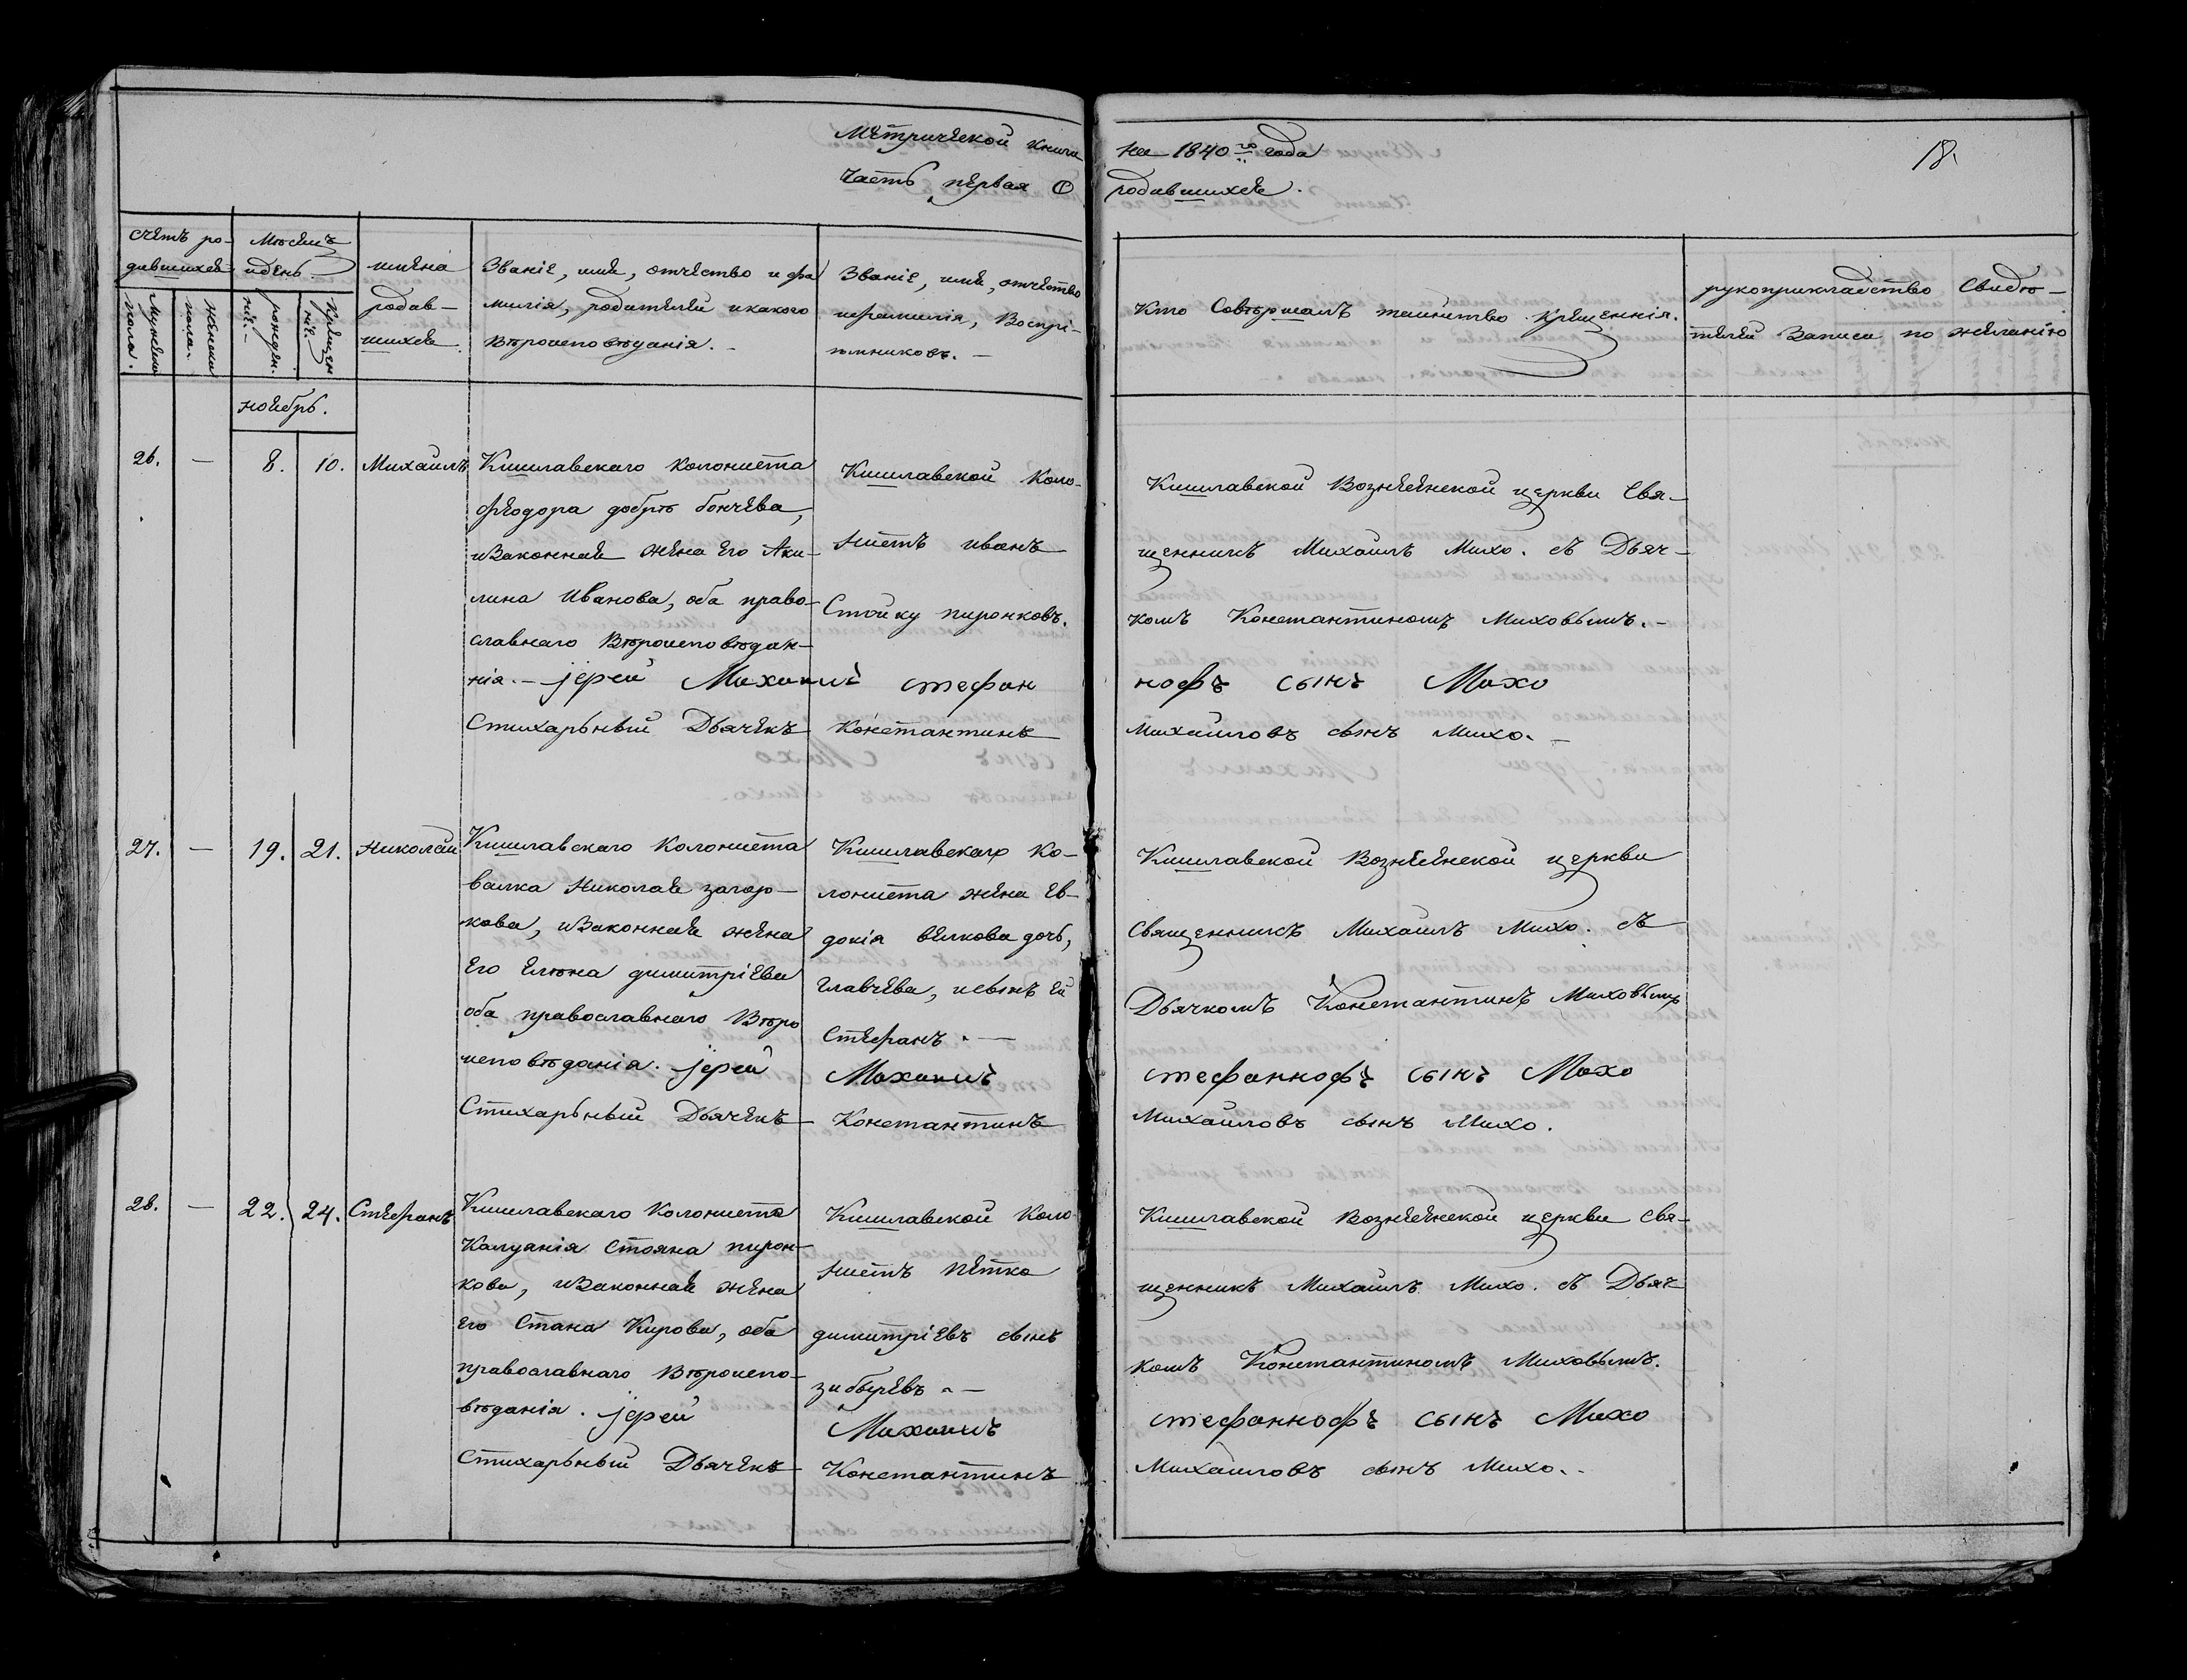 Метрической книги
Часть первая О
на 1840го года
родившихся.
18.
счетъ ро-
дившихся
мужеска
пола.
женска
пола.
Месяцъ
и день.
рожден.
нiе.
крещен
нiе.
имена
родив-
шихся
Званiе, имя, отчество и фа
милiя, родителей и какого
вѣроисповѣданiя.-
Званiе, имя, отчество
и фамилiя, Воспрi-
емниковъ.-
Кто Совѣршалъ таинство крещеннiя.
рукоприкладство Свидѣ-
телей Записи по желанiю
ноябрь.
26. - 8. 10. Михаилъ
Кишлавскаго колониста
Феодора добрѣ бончева,
и Законная жена Его Аки-
лина Иванова, оба право-
славнаго Вѣроисповѣдан-
нiя.- јерей Михаилъ стефан
Стихарьный Дьячекъ Константинъ
Кишлавской коло-
нистъ иванъ
Стойку пиронковъ.
Кишлавской Вознесенской церкви Свя-
щенникъ Михаилъ Михо. съ Дьяч-
комъ Константиномъ Миховымъ.-
нофъ сынъ Михо
Михаиловъ сынъ Михо.-
27. - 19. 21. Николай
Кишлавскаго Колониста
Валка Николая загор-
кова, и Законная жена
Его Елена димитрiева
оба православнаго Вѣро
исповѣданiя. јерей
Стихарьный Дьячекъ
Кишлавскаго ко-
лониста жена Ев-
докiя велкова дочь,
главчева, и сынъ ей
Стефанъ.-
Михаилъ
Константинъ
Кишлавской Вознесенской церкви
Священникъ Михаилъ Михо. съ
Дьячкомъ Константинъ Миховымъ
стефаннофъ сынъ Михо
Михаиловъ сынъ Михо.
28. - 22. 24. Стефанъ
Кишлавскаго Колониста
Стояна пирон-
кова, и Законная жена
Его Стана Кирова, оба
православнаго Вѣроиспо-
вѣданiя. јерей
Стихарьный Дьячекъ
Кишлавской коло
нистъ Петка
димитрiевъ сынъ
Михаилъ
Константинъ
Кишлавской Вознесенской церкви Свя-
щенникъ Михаилъ Михо. съ Дьяч
комъ Константиномъ Миховымъ.
стефаннофъ сынъ Михо
Михаиловъ сынъ Михо.-